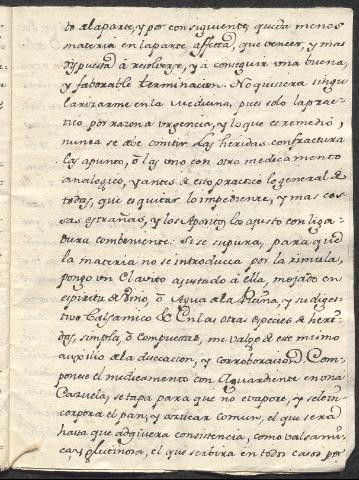 to ala parte, y por consiguiente, queda menos
materia en la parte affecta, que vencer, y mas
dispuesta â resolverse, y â conseguir una buena,
y faborable terminacion. No quisera singu
larizarme en la Mediuna, pues solo la prac-
tico por razon a urgencia, y lo que es remedio,
nunca se dve omitir. Las heridas con fractura
las apunto, ô las uno con otro medicamento
analogico, y antes de esto practico lo general de
todas, que es quitar lo impediente, y mas co-
sas estrañas, y los Apositos, los ajusto con liga-
dura combeniente. Si se supura, para que
la materia no se introducca por la rimula,
pongo un Clavito ajustado â ella, mojado en
espiritu de Vino, ô Agua ala Reina, y su diges-
tivo balsamico &. En las otras especies de heri-
das, simples, ô compuestas, me valgo de este mismo
auxilio ala duccacion, y corroboracion. Com-
ponese el medicamento con Aguardiente en una
Cazuela, se tapa para que no evapore, y se le in-
corpora el pan, y azucar comun, el que será
hasta que adquiera consistencia, como valsami-
ca, y glutinosa, el que servira en todos casos por